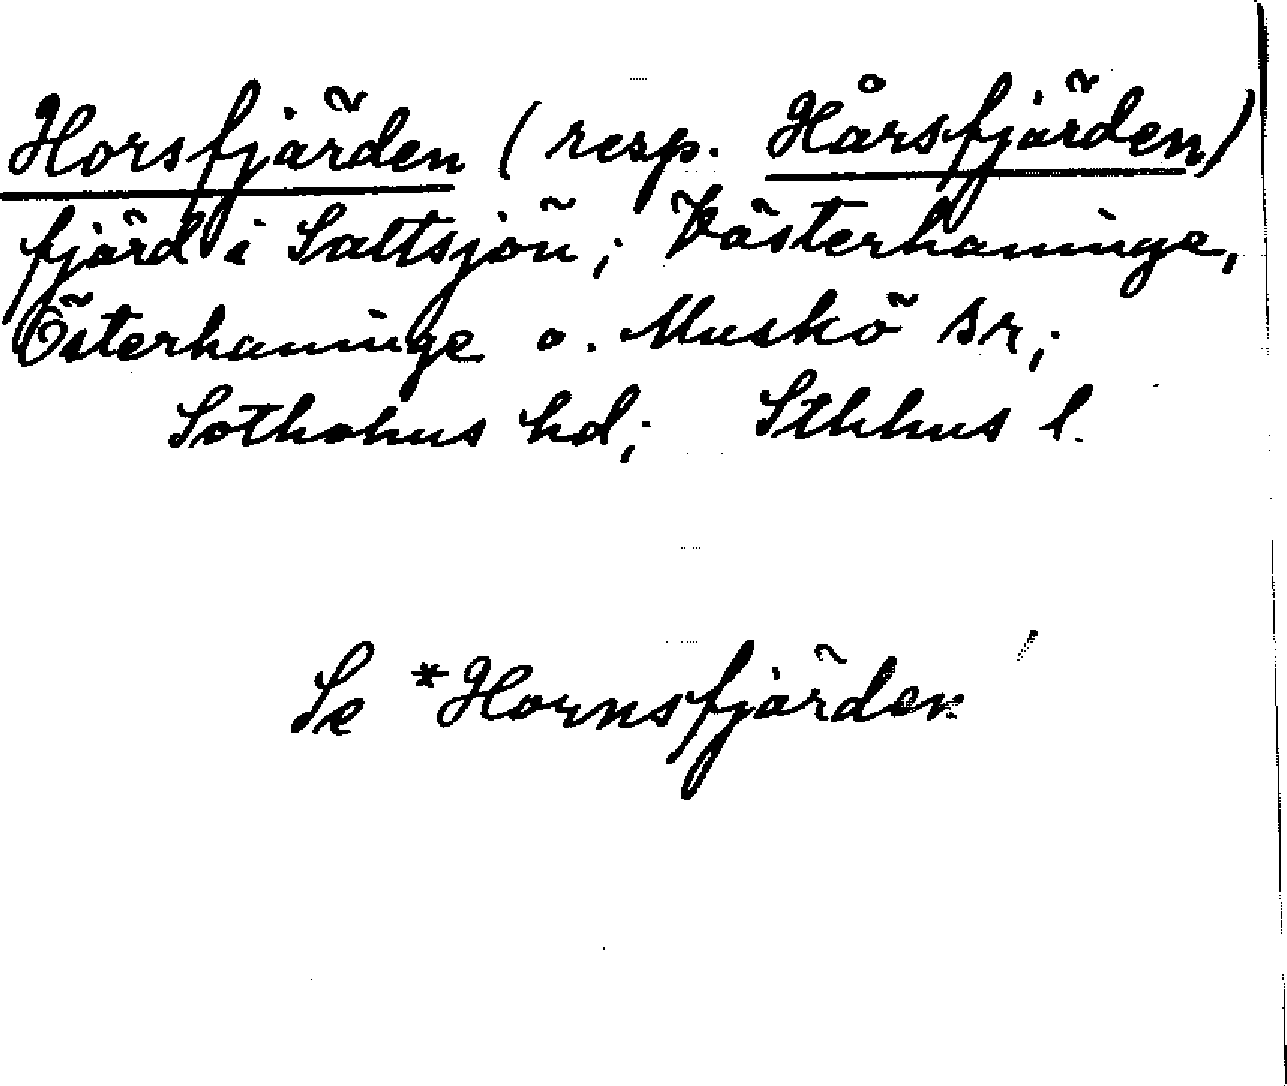 Horsfjärden (resp. Hårsfjärden)
fjärd i Saltsjön; Västerhaninge,
Österhaninge o. Muskö sn;
Sotholms hd; Sthlms l.
Se *Hornsfjärden